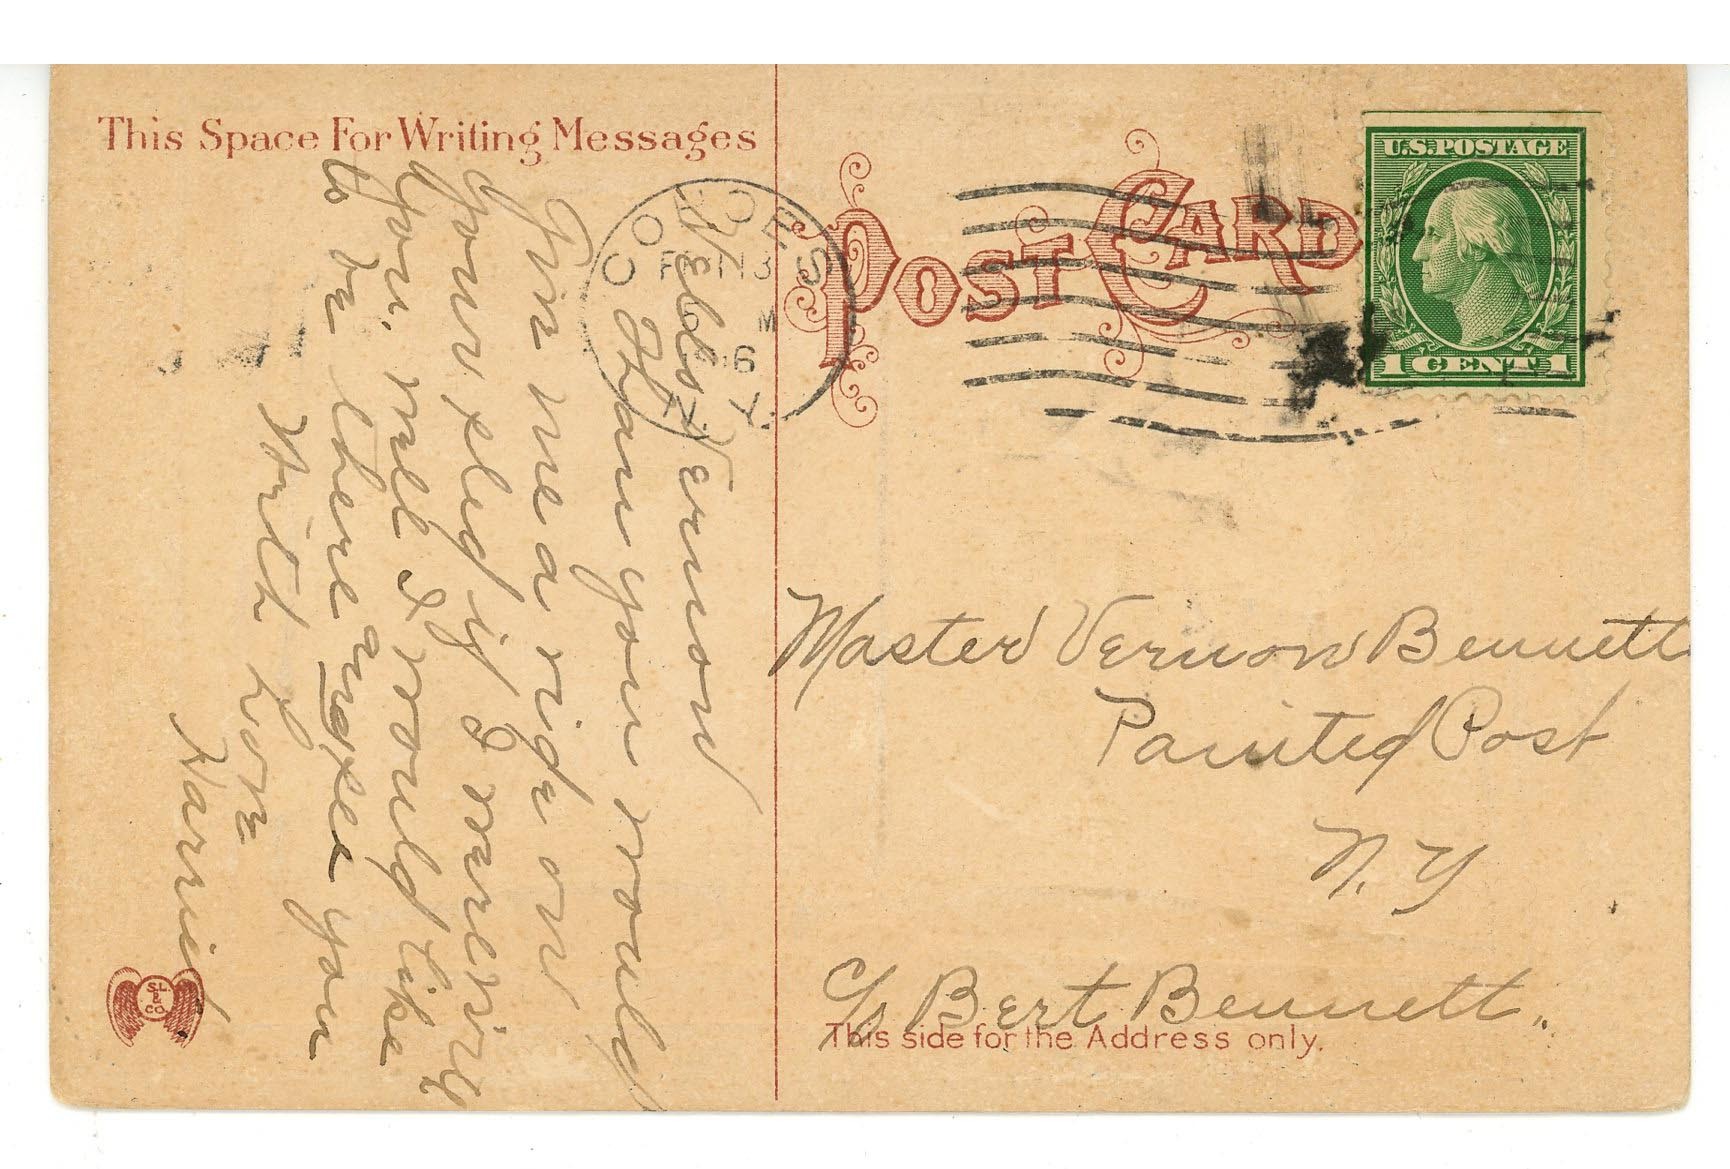 This Space For Writing Messages
POST CARD
U.S. POSTAGE
1 CENT 1
COHOES
FEB 13
6 M
16
N.Y.
Hello Vernon
Haw you would
Give me a ride on
your sled if I were with
you. well I would like
to be there and see you
With Love
Harriet
Master Vernon Bennett
Painted Post
N.Y
c/o Bert Bennett.
This side for the Address only.
S.L.
&
CO.